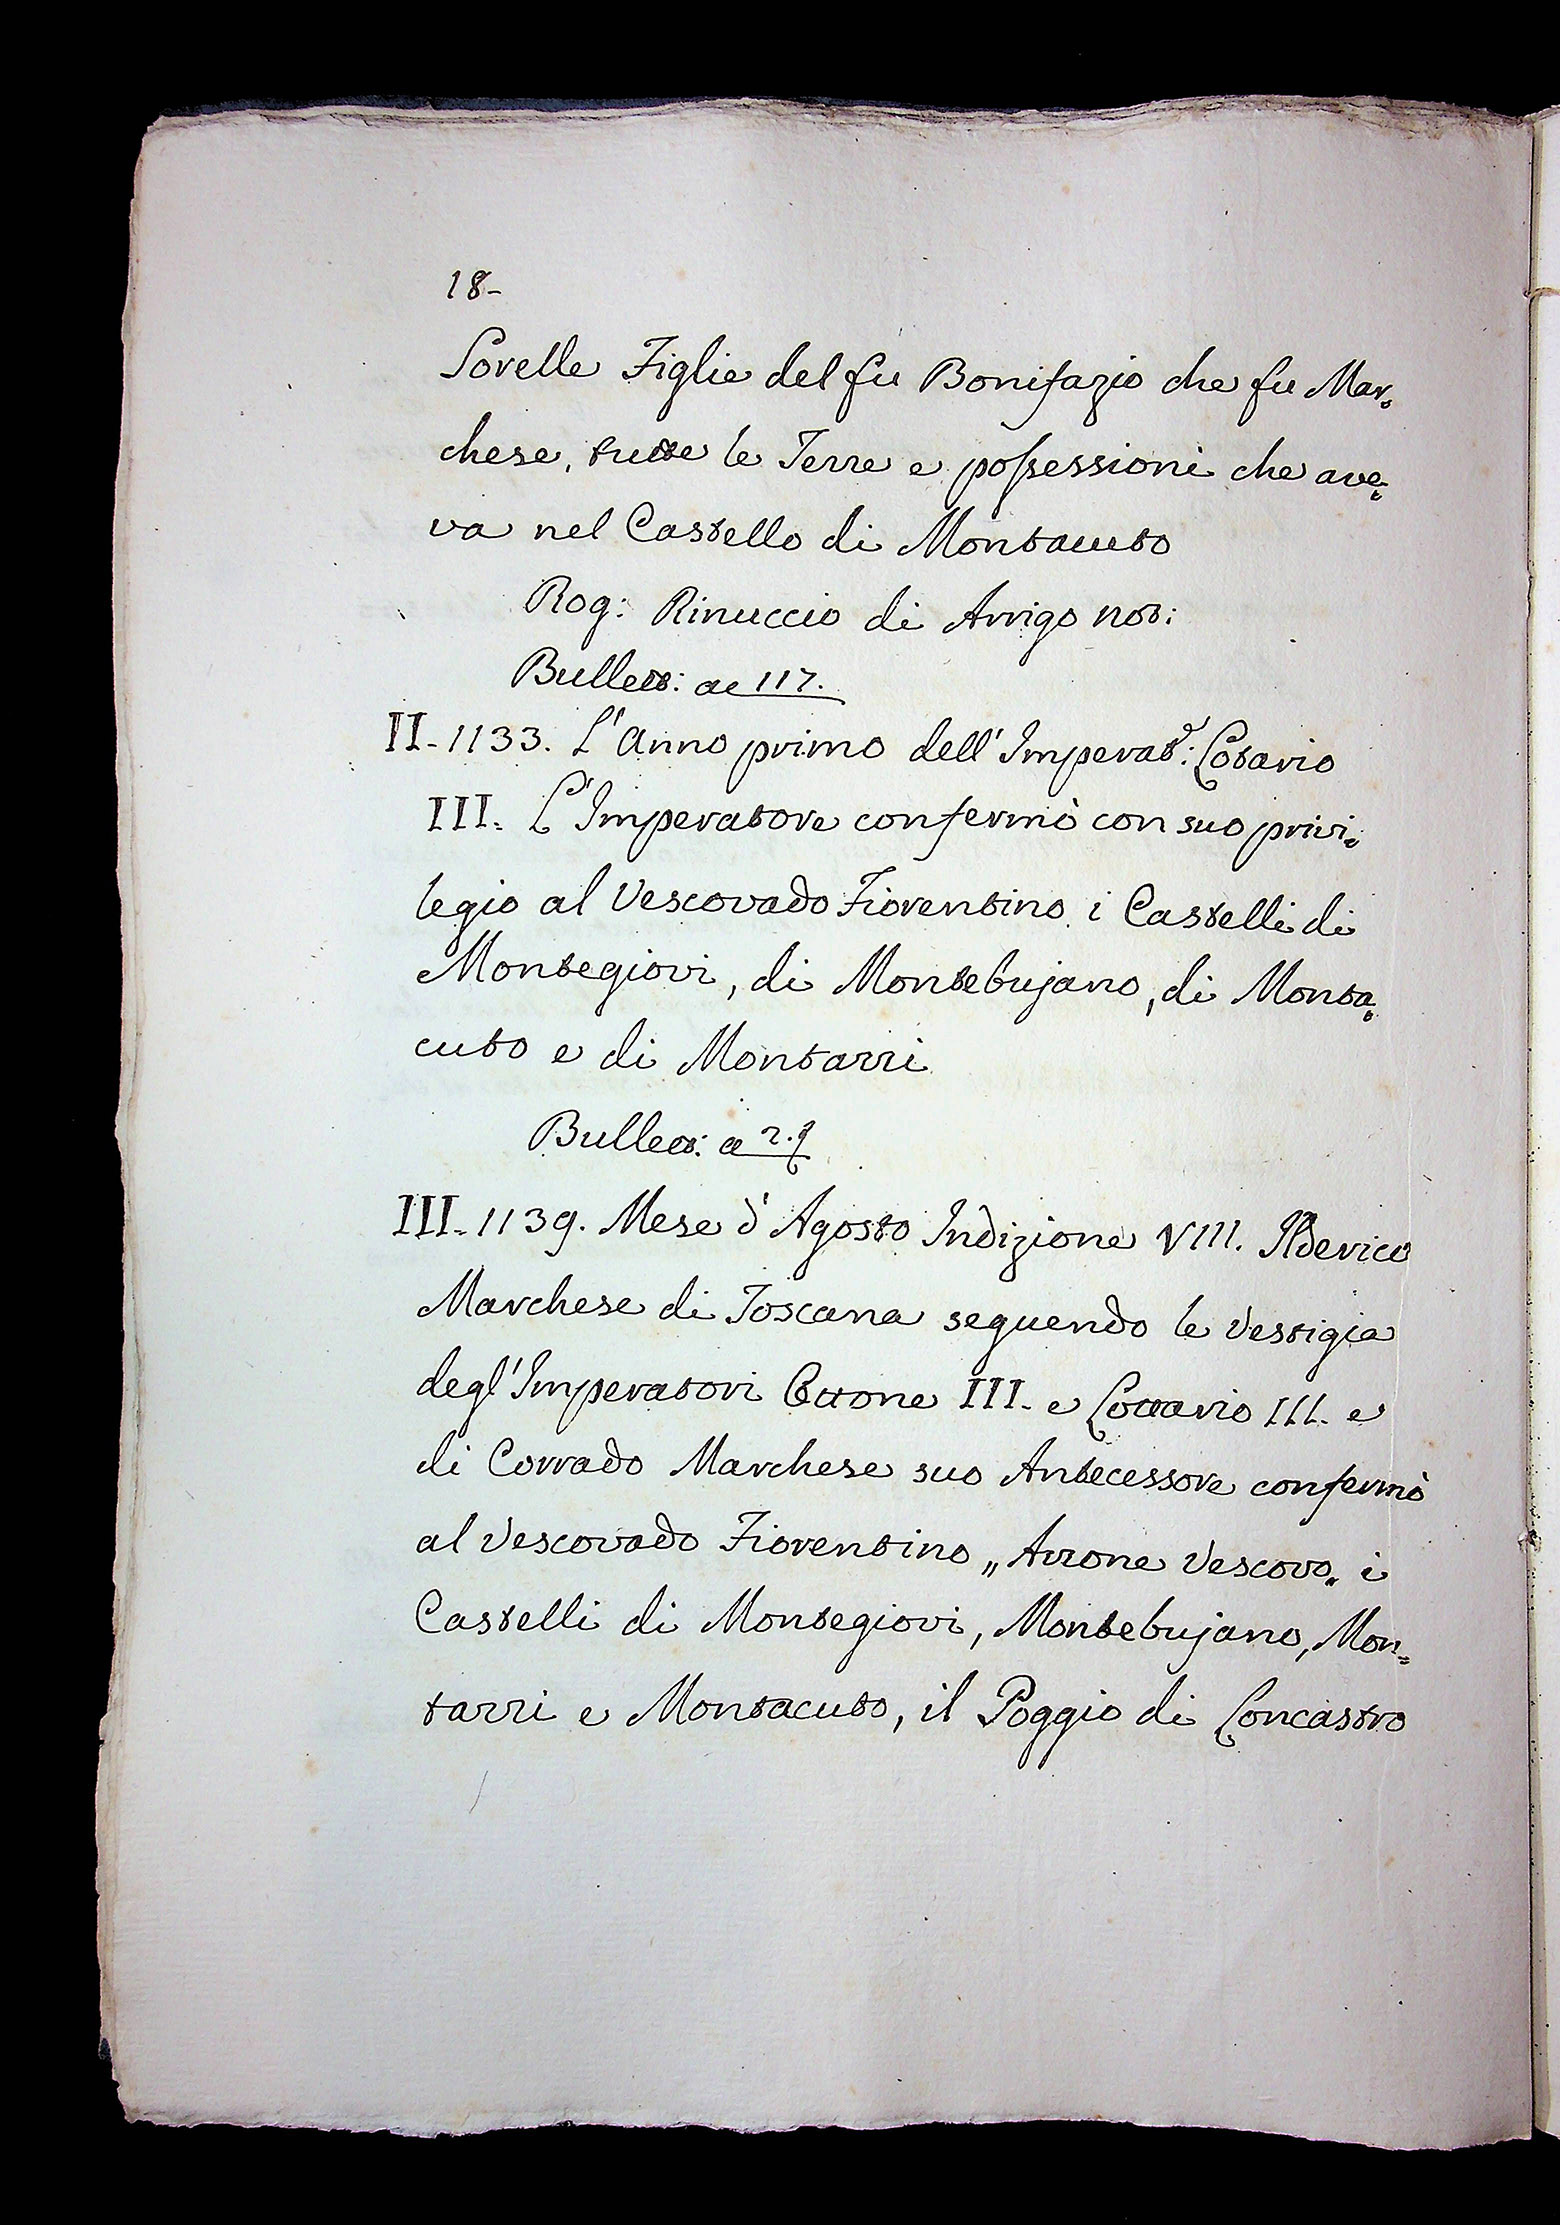 18-
Sorelle Figlie del fu Bonifazio che fu Mar=
chese, tutte le Terre e possessioni che ave=
va nel Castello di Montacuto
Rog: Rinuccio di Arrigo not:
Bullett: a 117.
II-1133. L'Anno primo dell'Imperat.e: Lotario
III. L'Imperatore confermò con suo privi=
legio al Vescovado Fiorentino i Castelli di
Montegiovi, di Montebujano, di Monta=
cuto e di Montazzi
Bullett: a
III-1139. Mese d'Agosto Indizione VIII. Ilderico
Marchese di Toscana seguendo le vestigia
degl'Imperatori Ottone III. e Lottario III. e
di Corrado Marchese suo Antecessore confermò
al Vescovado Fiorentino „ Azzone Vescovo „ i
Castelli di Montegiovi, Montebujano, Mon=
tazzi e Montacuto, il Poggio di Loncastro